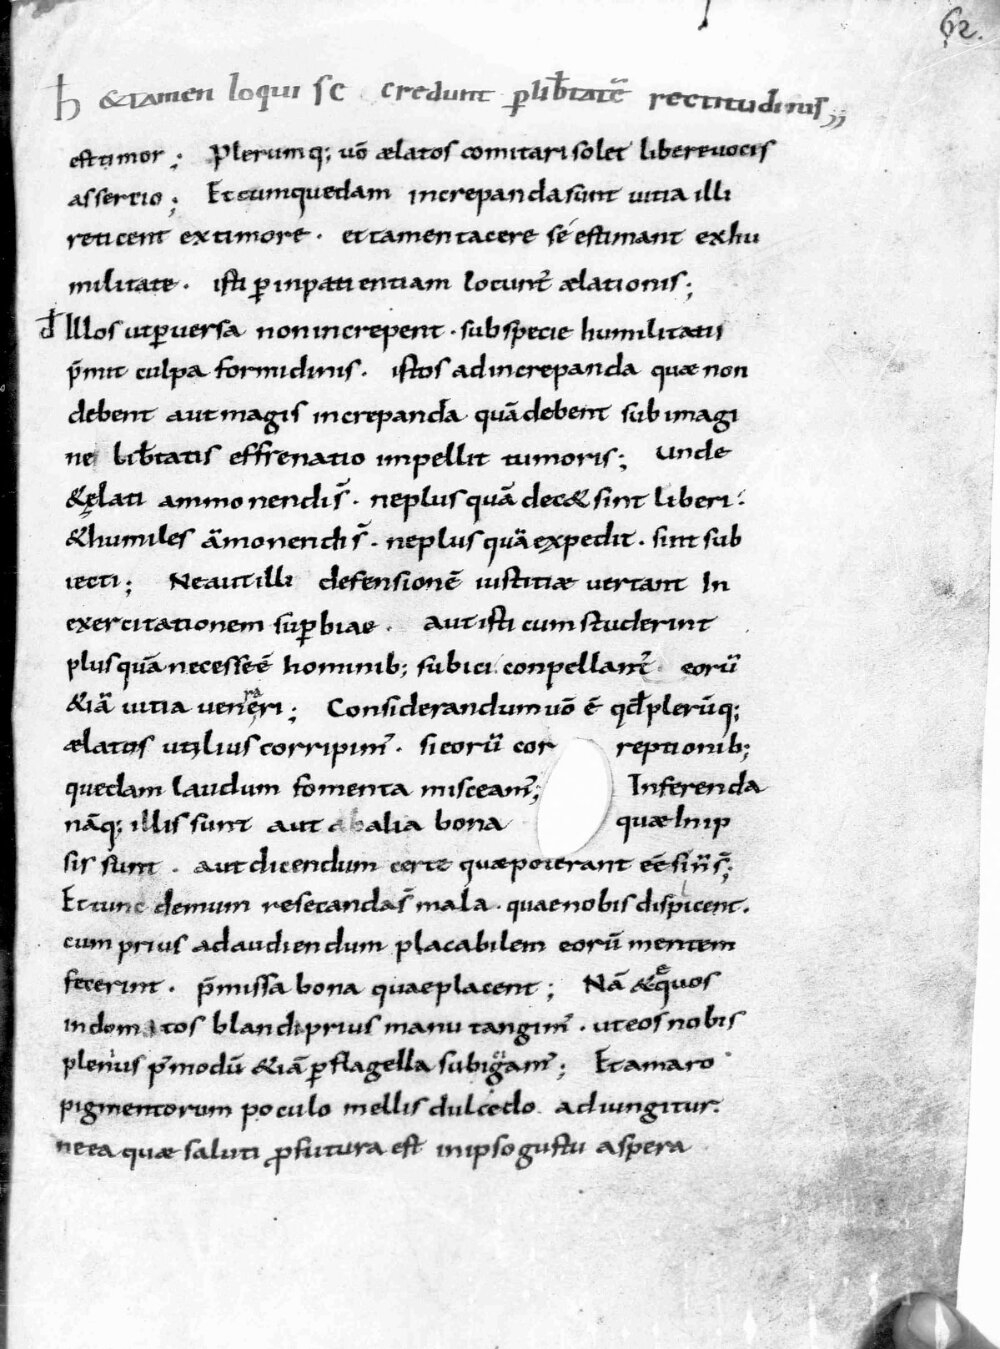 62.
h &tamen loqui se credunt ꝑ lib̅tate̅ rectitudinis,,
est timor; Plerumq; uo̅ ælatos comitari solet liberę uocis
assertio; Et cum quedam increpanda sunt uitia illi
reticent ex timore. et tamen tacere se estimant ex hu
militate. isti ꝑ inpatientiam locunt̅ ælationis;
đ Illos ut ꝑuersa non increpent. sub specie humilitatis
p̅mit culpa formidinis. istos ad increpanda quæ non
debent aut magis increpanda qua̅ debent sub imagi
ne lib̅tatis effrenatio impellit tumoris; Unde
& ęlati ammonendi s̅. ne plus qua̅ dec& sint liberi.
& humiles a̅monendi s̅. ne plus qua̅ expedit. sint sub
iecti; Ne aut illi defensione̅ iustitiæ uertant In
exercitationem suꝑbiae. Aut isti cum studerint
plus qua̅ necesse e̅ hominib; subici conpellant̅ eoru̅
& ia̅ uitia uenęri; ra Considerandum uo̅ e̅ qđ pleru̅q;
ælatos utilius corripim̅. si eoru̅ cor reptionib;
quedam laudum fomenta misceam̅; Inferenda
na̅q; illis sunt aut alia bona quæ In ip
sis sunt. aut dicendum certe quæ poterant ee̅ si n̅ s̅;
Et tunc demum resecanda s̅ mala. quae nobis displicent.
cum prius ad audiendum placabilem eoru̅ mentem
fecerint. p̅missa bona quae placent; Na̅ & equos
indomitos blande prius manu tangim̅. ut eos nobis
plenius p̅modu̅ & ia̅ ꝑ flagella subigam̅; Et amaro
pigmentorum poculo mellis dulcedo adiungitur.
ne ea quæ saluti ꝓfutura est in ipso gustu aspera